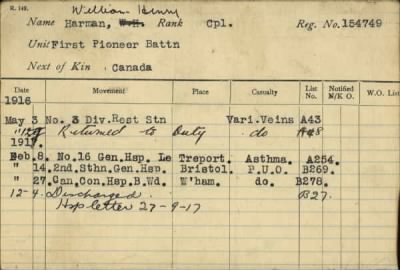 R. 149.
William Henry
Name Harman, W.H. Rank Cpl. Reg. No. 154749
Unit First Pioneer Battn
Next of Kin Canada
Date Movement Place Casualty List No. Notified N/K O. W.O. List
1916
May 3 No. 3 Div.Rest Stn Vari.Veins A43
" Returned to Duty do A48
1917.
Feb.8. No.16 Gen.Hsp. Le Treport. Asthma. A254.
" 14.2nd.Sthn.Gen.Hsp. Bristol. P.U.O. B269.
" 27.Can.Con.Hsp.B.Wd. W'ham. do. B278.
12-4 Discharged B27.
Hsp letter 27-9-17